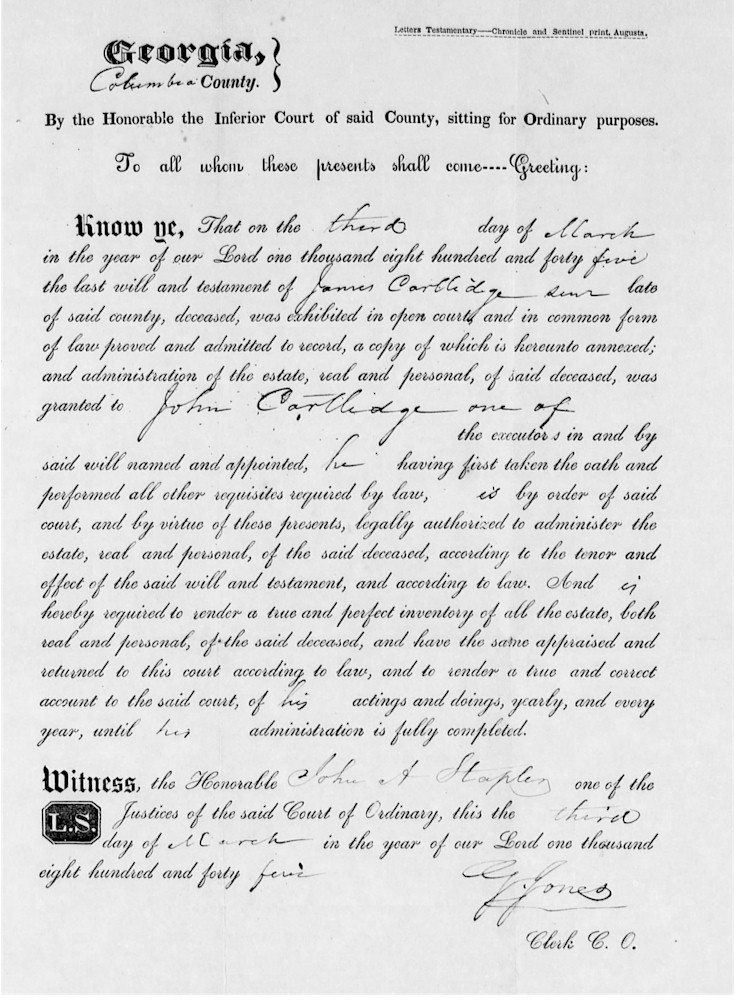 Letters Testamentary——Chronicle and Sentinel print, Augusta.
Georgia, }
Columbia County.
By the Honorable the Inferior Court of said County, sitting for Ordinary purposes.
To all whom these presents shall come----Greeting:
Know ye, That on the third day of March
in the year of our Lord one thousand eight hundred and forty five
the last will and testament of James Cartlidge senr late
of said county, deceased, was exhibited in open court, and in common form
of law proved and admitted to record, a copy of which is hereunto annexed;
and administration of the estate, real and personal, of said deceased, was
granted to John Cartlidge one of
the executors in and by
said will named and appointed, he having first taken the oath and
performed all other requisites required by law, is by order of said
court, and by virtue of these presents, legally authorized to administer the
estate, real and personal, of the said deceased, according to the tenor and
effect of the said will and testament, and according to law. And is
hereby required to render a true and perfect inventory of all the estate, both
real and personal, of the said deceased, and have the same appraised and
returned to this court according to law, and to render a true and correct
account to the said court, of his actings and doings, yearly, and every
year, until his administration is fully completed.
Witness, the Honorable John A Staples one of the
L.S. Justices of the said Court of Ordinary, this the third
day of March in the year of our Lord one thousand
eight hundred and forty five
G. Jones
Clerk C. O.